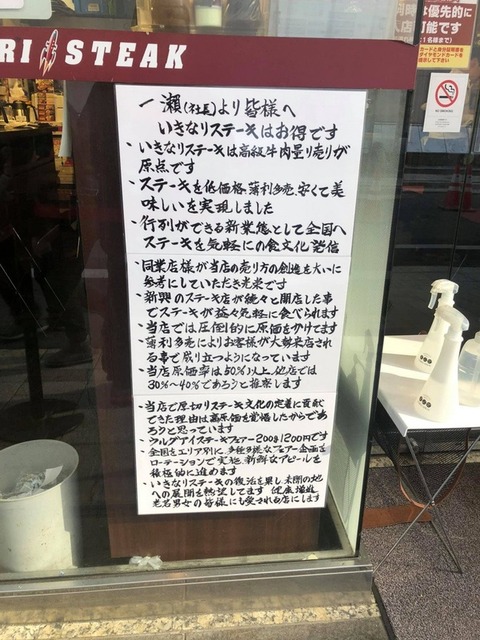 RI STEAK
一瀬(社長)より皆様へ
いきなりステーキはお得です
・いきなりステーキは高級牛肉量り売りが
原点です
・ステーキを低価格、薄利多売、安くて美
味しいを実現しました
・行列ができる新業態として全国へ
ステーキを気軽にの食文化発信
・同業店様が当店の売り方の創造を大いに
参考にしていただき光栄です
・新興のステーキ店が続々と開店した事
でステーキが益々気軽に食べられます
・当店では圧倒的に原価をかけてます
・薄利多売によりお客様が大勢来店され
る事で成り立つようになっています
・当店原価率は50%以上、他店では
30%~40%であろうと推察します
・当店で厚切りステーキ文化の定着に貢献
できた理由は高原価を覚悟したからで
あろうと思っています
・ワイルドアイステーキフェアー200g1200円です
・全国をエリア別に、多種多様なフェアー企画を
ローテーションで実施、新鮮なアピールを
積極的に進めます
・いきなりステーキの復活を果し、未開の地
への展開を熱望してます
老若男女の皆様にも愛される店にします
優先的に
可能です
NO SMOKING